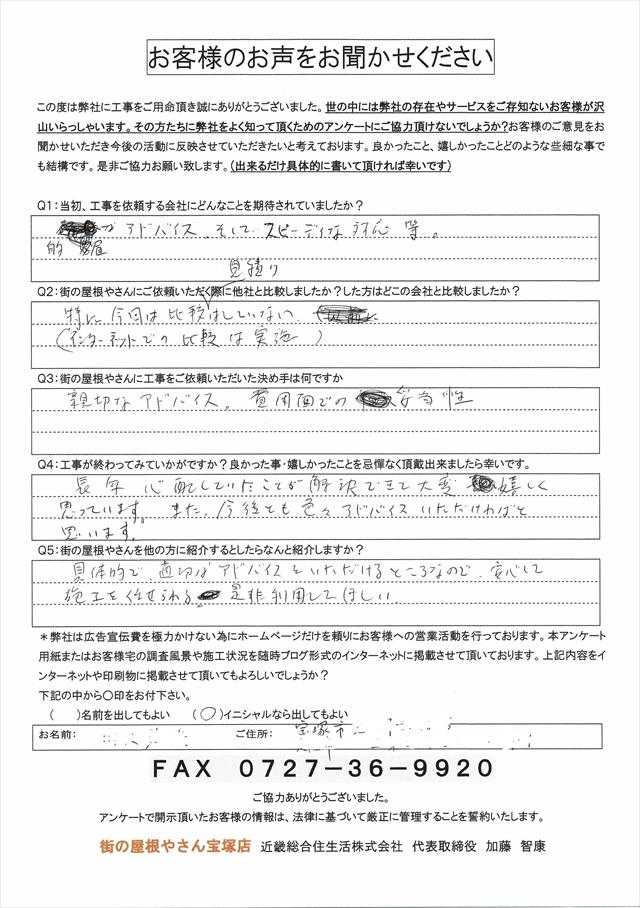 お客様のお声をお聞かせください
この度は弊社に工事をご用命頂き誠にありがとうございました。世の中には弊社の存在やサービスをご存知ないお客様が沢
山いらっしゃいます。その方たちに弊社をよく知って頂くためのアンケートにご協力頂けないでしょうか?お客様のご意見をお
聞かせいただき今後の活動に反映させていただきたいと考えております。良かったこと、嬉しかったことどのような些細な事で
も結構です。是非ご協力お願い致します。(出来るだけ具体的に書いて頂ければ幸いです)
Q1:当初、工事を依頼する会社にどんなことを期待されていましたか?
的確 アドバイス、そして スピーディな 対応 等。
見積り
Q2:街の屋根やさんにご依頼いただく際に他社と比較しましたか?した方はどこの会社と比較しましたか?
特に 今回は 比較はしていない、
(インターネットでの 比較 は 実施 )
Q3:街の屋根やさんに工事をご依頼いただいた決め手は何ですか
親切なアドバイス。費用面での 妥当性
Q4:工事が終わってみていかがですか?良かった事・嬉しかったことを忌憚なく頂戴出来ましたら幸いです。
長年 心配していたことが 解決できて大変 嬉しく
思っています。また、今後とも 色々アドバイス いただければと
思います。
Q5:街の屋根やさんを他の方に紹介するとしたらなんと紹介しますか?
具体的で、適切なアドバイスをいただけるところなので、安心して
施工を任せられる 是非利用してほしい.
*弊社は広告宣伝費を極力かけない為にホームページだけを頼りにお客様への営業活動を行っております。本アンケート
用紙またはお客様宅の調査風景や施工状況を随時ブログ形式のインターネットに掲載させて頂いております。上記内容をイ
ンターネットや印刷物に掲載させて頂いてもよろしいでしょうか?
下記の中から○印をお付下さい。
( )名前を出してもよい (○)イニシャルなら出してもよい
お名前: ご住所: 宝塚市
FAX 0727-36-9920
ご協力ありがとうございました。
アンケートで開示頂いたお客様の情報は、法律に基づいて厳正に管理することを誓約いたします。
街の屋根やさん宝塚店 近畿総合住生活株式会社 代表取締役 加藤 智康